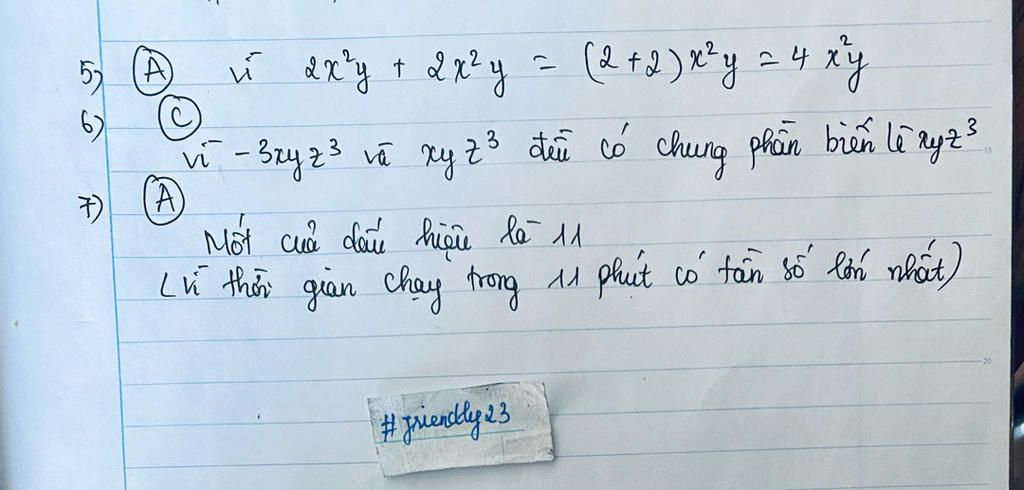 5) A vì 2x²y + 2x²y = (2+2)x²y = 4x²y
6) C
vì -3xyz³ và xyz³ đều có chung phần biến là xyz³
7) A
Mốt của dấu hiệu là 11
(Vì thời gian chạy trong 11 phút có tần số lớn nhất)
#friendly23